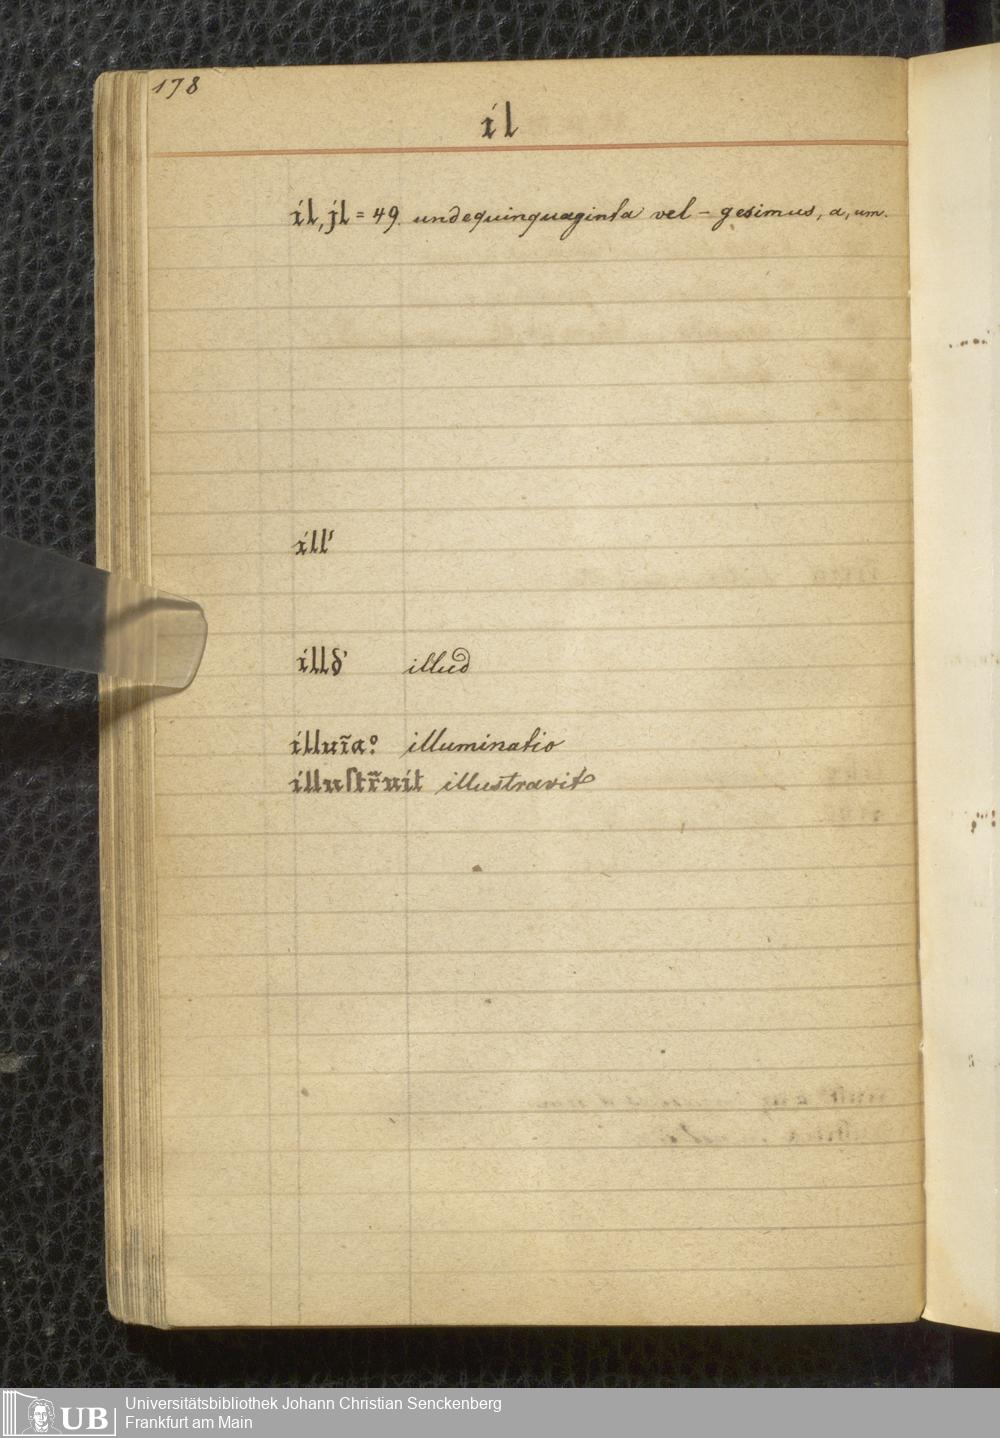 178
il
il, jl = 49. undequinquaginta vel - gesimus, a, um.
ill'
illd' illud
illuīa° illuminatio
illuſtr̃uit illustravit
Universitätsbibliothek Johann Christian Senckenberg
Frankfurt am Main
UB